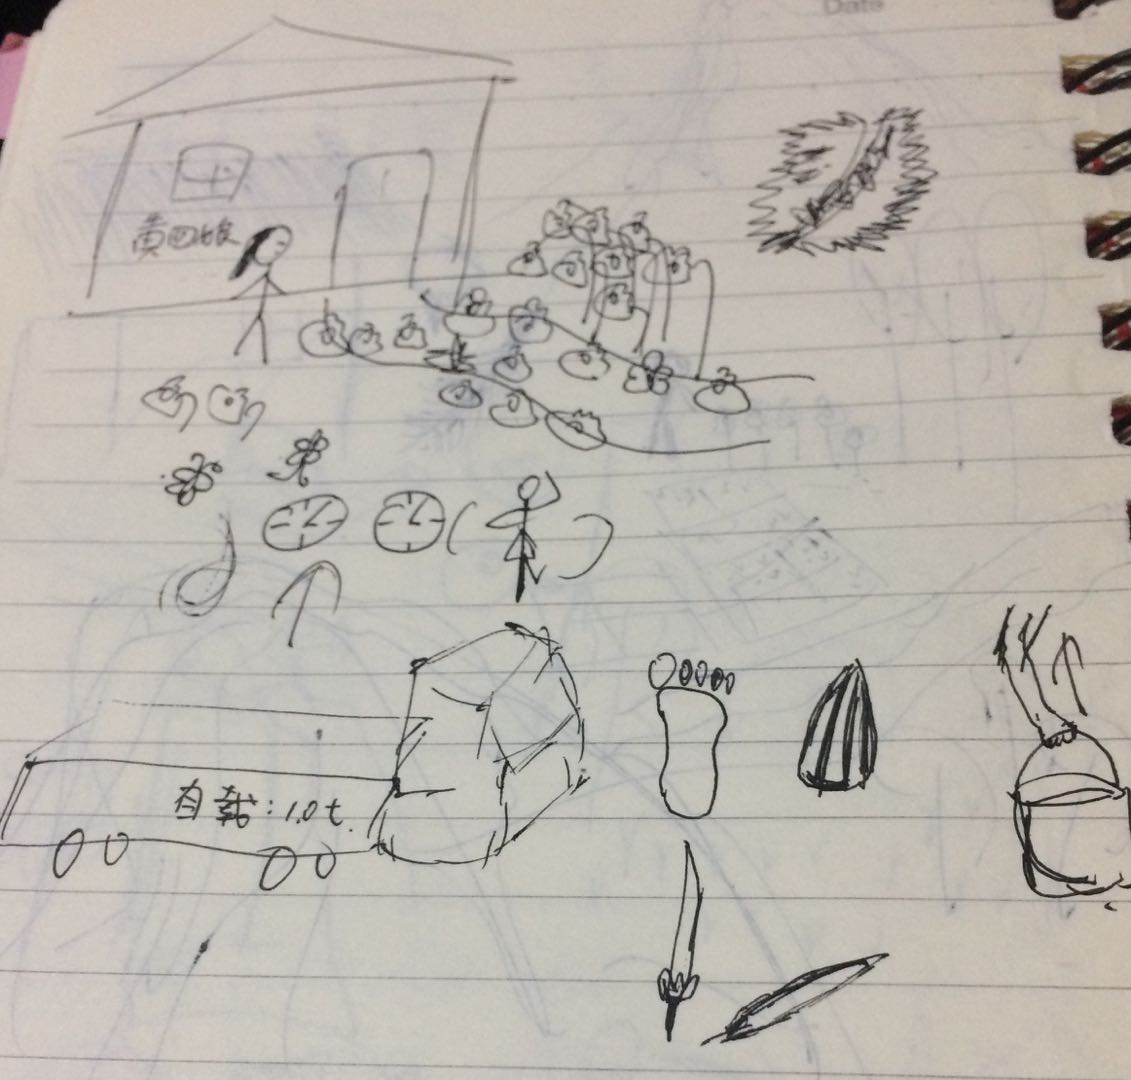 Date
黄四娘
自载：1.0t.